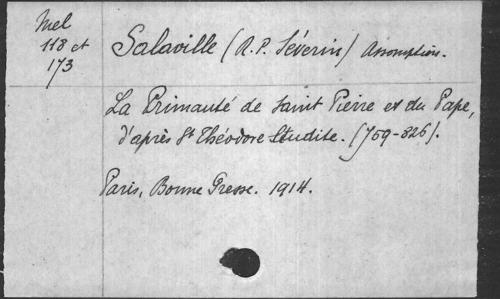 Mel
118 et
173
Salaville (R.P. Séverin) Assomption.
La Primauté de saint Pierre et du Pape,
d'après St Théodore Studite. (759-826).
Paris, Bonne Presse. 1914.